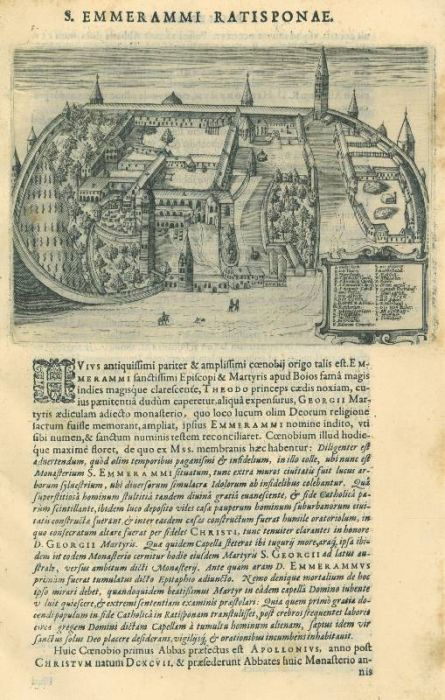 S. EMMERAMMI RATISPONAE.
HVIVS antiquissimi pariter & amplissimi cœnobij origo talis est. EM-
MERAMMI sanctissimi Episcopi & Martyris apud Boios famâ magis
indies magisque clarescense, THEODO princeps cædis noxiam, cu-
ius pænitentiâ dudùm caperetur, aliquâ expensurus, GEORGII Mar-
tyris ædiculam adiecto monasterio, quo loco lucum olim Deorum religione
sactum fuisse memorant, ampliat, ipsius EMMERAMMI nomine indito, vti
sibi numen, & sanctum numinis testem reconciliaret. Cœnobium illud hodie-
que maximè floret, de quo ex Mss. membranis hæc habentur: Diligenter est
aduertendum, quòd olim temporibus paganismi & infidelium, in illo colle, ubi nunc est
Monasterium S. EMMERAMMI situatum, tunc extra muros ciuitatis fuit lucus ar-
borum syluestrium, ubi diuersorum simulacra Idolorum ab infidelibus colebantur. Quâ
superstitiosâ hominum stultitiâ tandem diuinâ gratiâ euanescente, & fide Catholicâ pa-
rùm scintillante, ibidem loco deposito viles casæ pauperum hominum suburbanorum ciui-
tatis constructæ fuerant, & inter easdem casas constructum fuerat humile oratoriolum, in-
quo consecratum altare fuerat per fideles CHRISTI, tunc tenuiter clarantes in honore
D. GEORGII Martyris. Quæ quidem Capella steterat ibi tugurij more, atque ipsa ibi-
dem iut eodem Monasterio cernitur hodie eiusdem Martyris S. GEORGII ad latus au-
strale, versus ambitum dicti Monasterij. Ante quam aram D. EMMERAMMVS
primùm fuerat tumulatus dicto Epitaphio adiuncto. Nemo denique mortalium de hoc
ipso mirari debet, quandoquidem beatissimus Martyr in eâdem capellâ Domino iubente
v luit quiescere, & extremi sententiam examinis præstolari: Quia quem primò gratia do-
cendi populum in fide Catholicâ in Ratisponam transtulisset, post crebros frequenter labores
circa gregem Domini dictam Capellam à tumultu hominum alienam, sæptus idem vir
sanctus solus Deo placere desiderans, vigilijs, & orationibus incumbens inhabitauit.
Huic Cœnobio primus Abbas præfectus est APOLLONIVS, anno post
CHRISTVM natum DCXCVII, & præsederunt Abbates huic Monasterio an-
nis